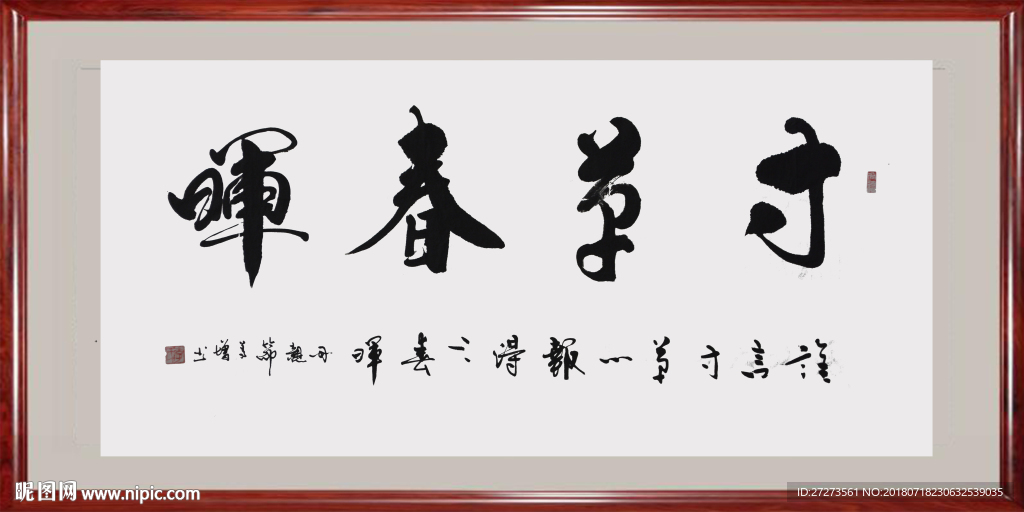 寸草春暉
誰言寸草心報得三春暉母親節增书
昵图网 www.nipic.com
ID:27273561 NO:20180718230632539035